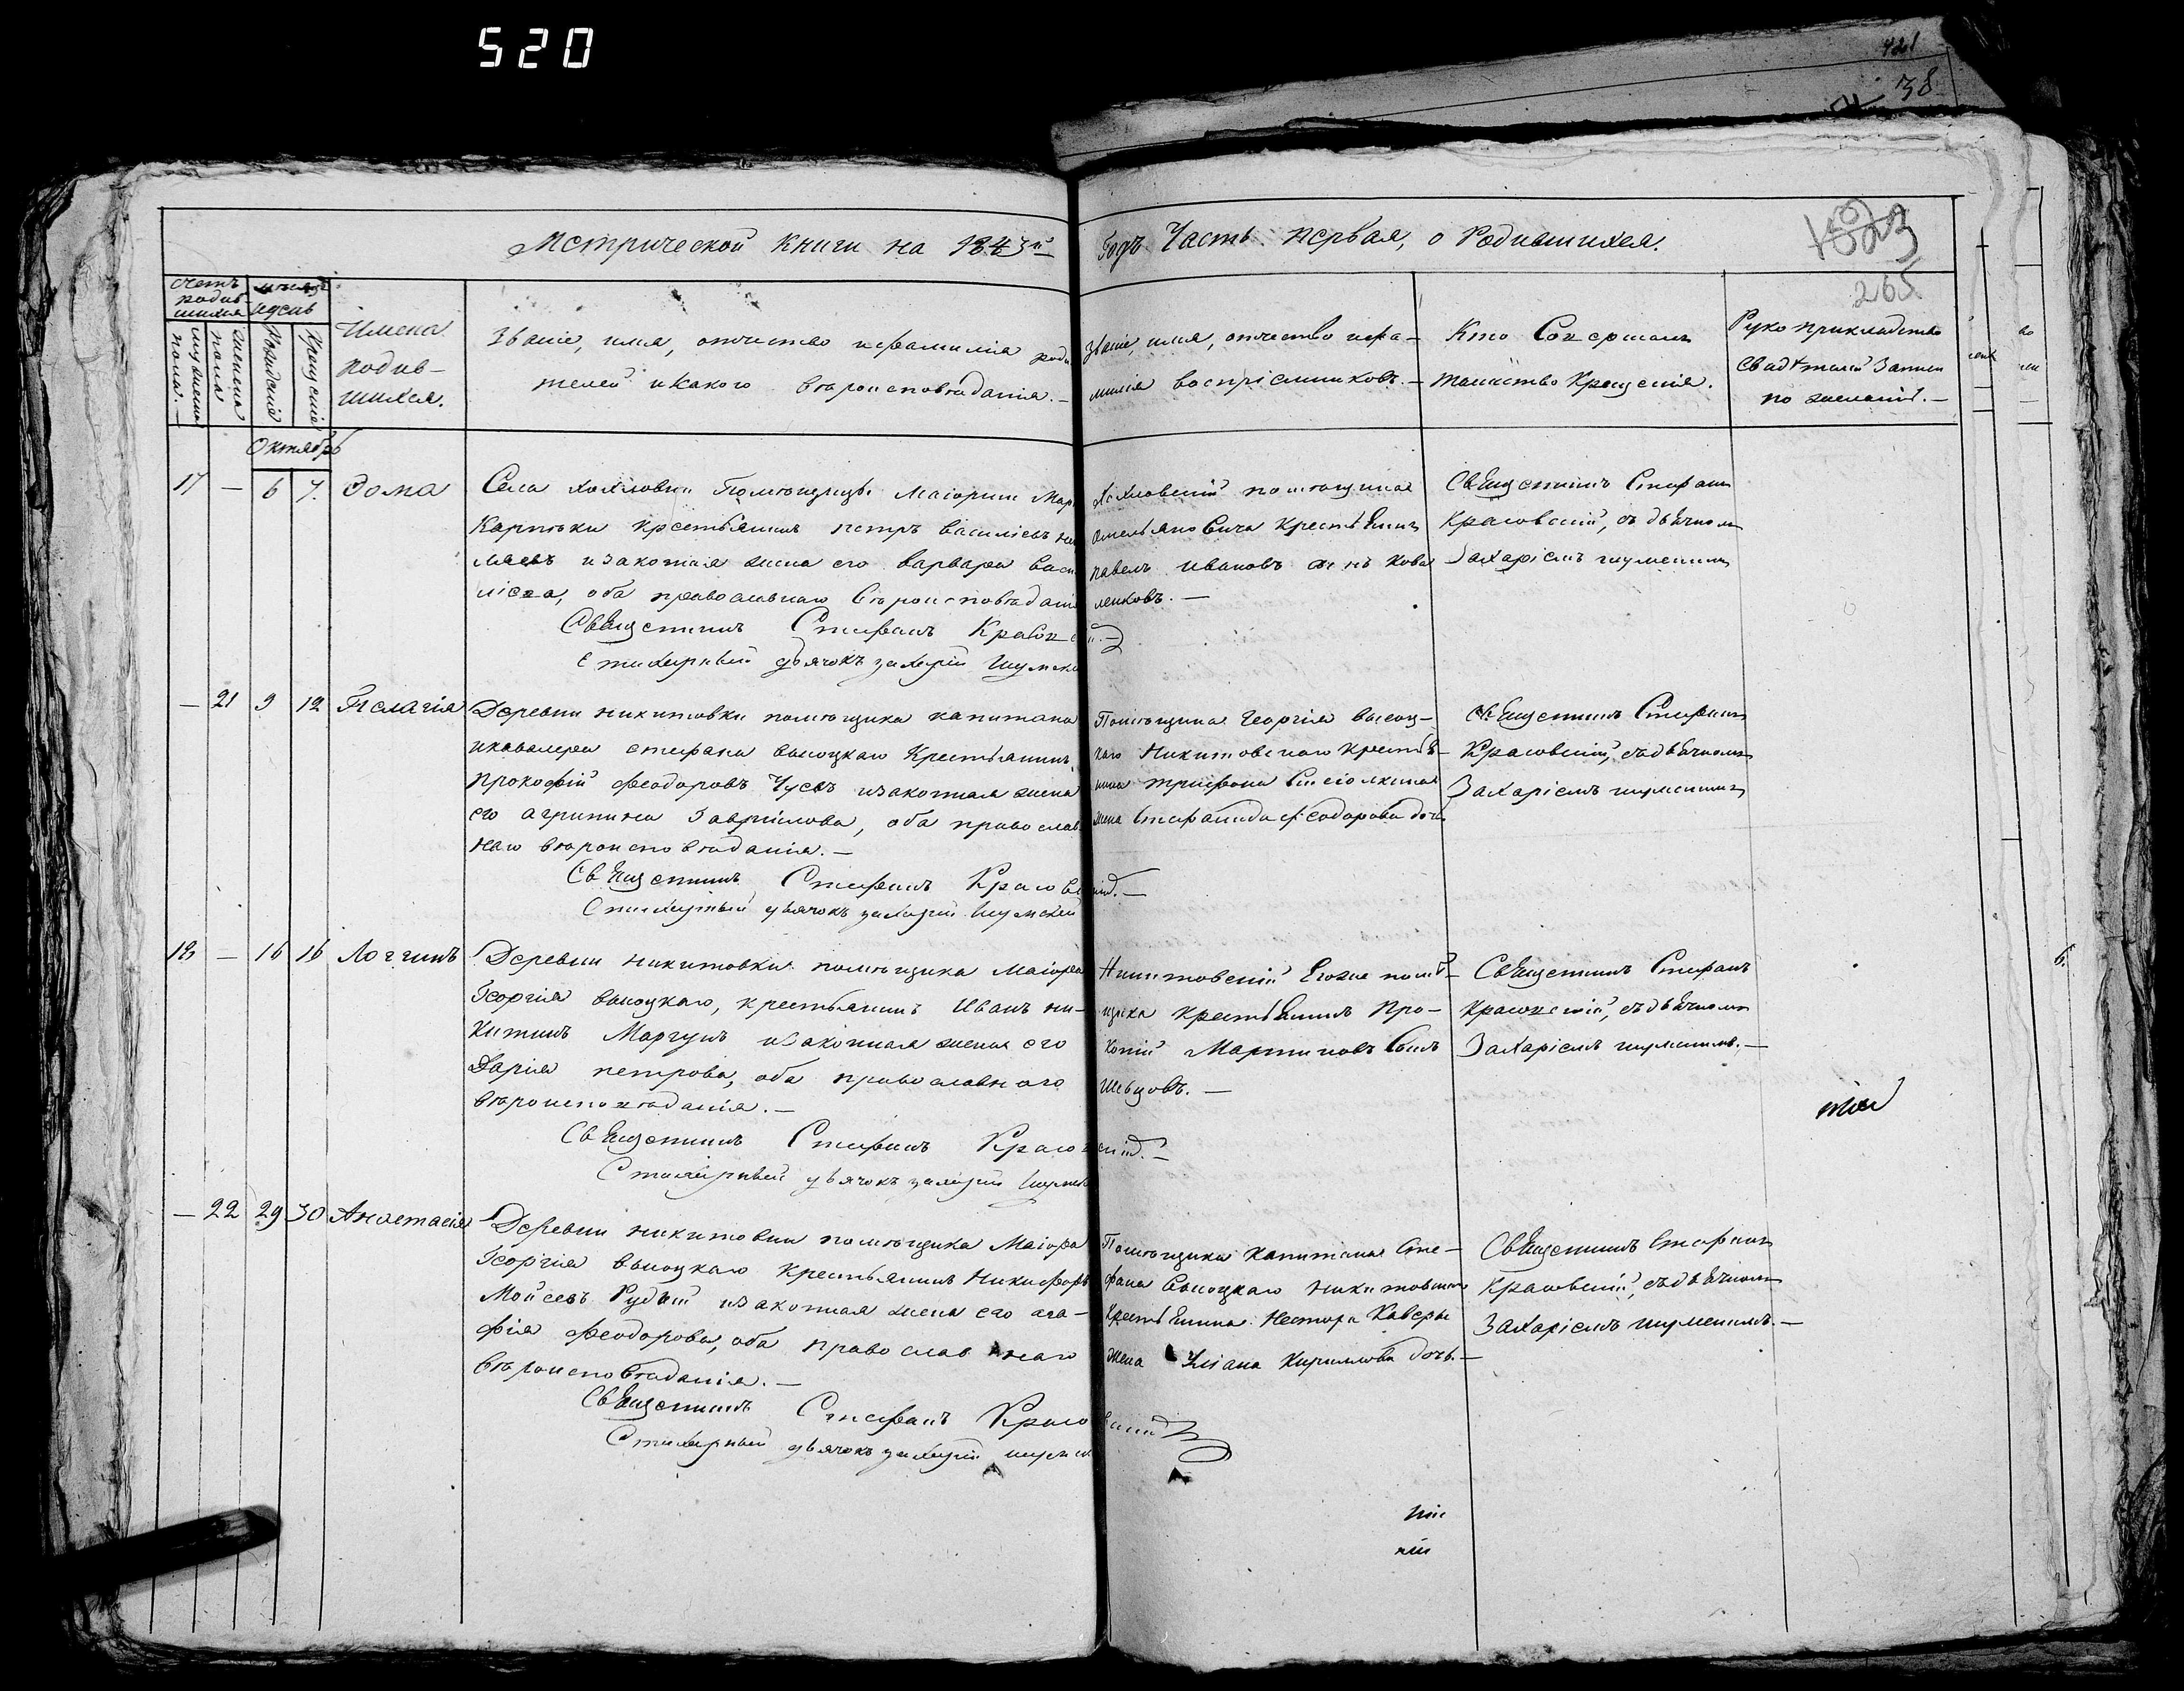 520
421
38
Метрической книги на 1843й
Годъ Часть первая, о Родившихся.
1823
265
счетъ родившихся
мѣсяцъ и день
мужеска пола.
женска пола
Рождения
Крещения
Имена родив-
шихся.
Званіе, имя, отчество и фамилія роди
телей и какого вѣроисповѣданія.—
Званіе, имя, отчество и фа-
милія воспріемниковъ.—
Кто Совершалъ
таинство Крещенія.
Рукоприкладство
свидѣтелей записи
по желанію.—
Октябрь
17 — 6 7. Ѳома
Села Помѣщицы Маіорши Мар
Карпѣки крестьянинъ петръ василіевъ
и законная жена его варвара васи
ліева, оба православнаго вѣроисповѣданія
Священникъ Стефанъ Красовскій.—
Стихарный дьячокъ захарій Шумскій
помѣщика
Омельяновича крестьянинъ
павелъ ивановъ сынъ кова
ленковъ.—
Священникъ Стефанъ
Красовскій, съ дьячкомъ
Захаріемъ шумскимъ
— 21 9 12 Пелагія
Деревни никитовки помѣщика капитана
и кавалера стефана высоцкаго Крестьянинъ
прокофій феодоровъ Чуевъ и законная жена
его агрипина Гаврилова, оба православ
наго вѣроисповѣданія.—
Священникъ Стефанъ Красовскій.—
Стихарный дьячокъ захарій Шумскій
Помѣщика Георгія высоц-
каго Никитовскаго крестья-
нина трифона
жена Стефанида феодорова дочь
Священникъ Стефанъ
Красовскій, съ дьячкомъ
Захаріемъ шумскимъ
18 — 16 16 Логгинъ
Деревни никитовки помѣщика Маіора
Георгія высоцкаго, крестьянинъ Иванъ ни-
китинъ Моргунъ и законная жена его
Дарія петрова, оба православного
вѣроисповѣданія.—
Священникъ Стефанъ Красовскій.—
Стихарный дьячокъ захарій Шумскій
Никитовскій помѣ-
щика крестьянинъ Про-
копій Мартиновъ сынъ
Шевцовъ.—
Священникъ Стефанъ
Красовскій, съ дьячкомъ
Захаріемъ шумскимъ.—
— 22 29 30 Анастасія
Деревни никитовки помѣщика Маіора
Георгія высоцкаго крестьянинъ Никифоръ
Мойсеевъ Рудый и законная жена его ага-
фія феодорова, оба православнаго
вѣроисповѣданія.—
Священникъ Стефанъ Красовскій
Стихарный дьячокъ захарій шумскій
Помѣщика капитана Сте-
фана Высоцкаго никитовскаго
крестьянина Нестора Каверы
жена Уліана Кириллова дочь.—
Священникъ Стефанъ
Красовскій, съ дьячкомъ
Захаріемъ шумскимъ.—
6.